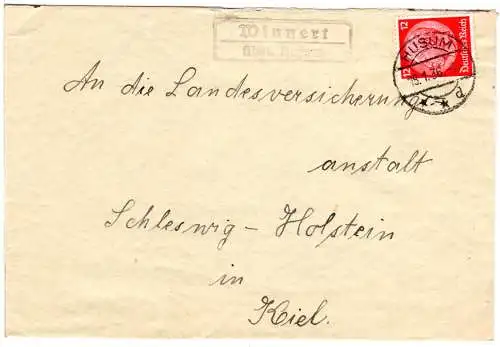 Winnert
über Husum
HUSUM
12 12
Deutsches Reich
An die Landesversicherung
anstalt
Schleswig-Holstein
in
Kiel.